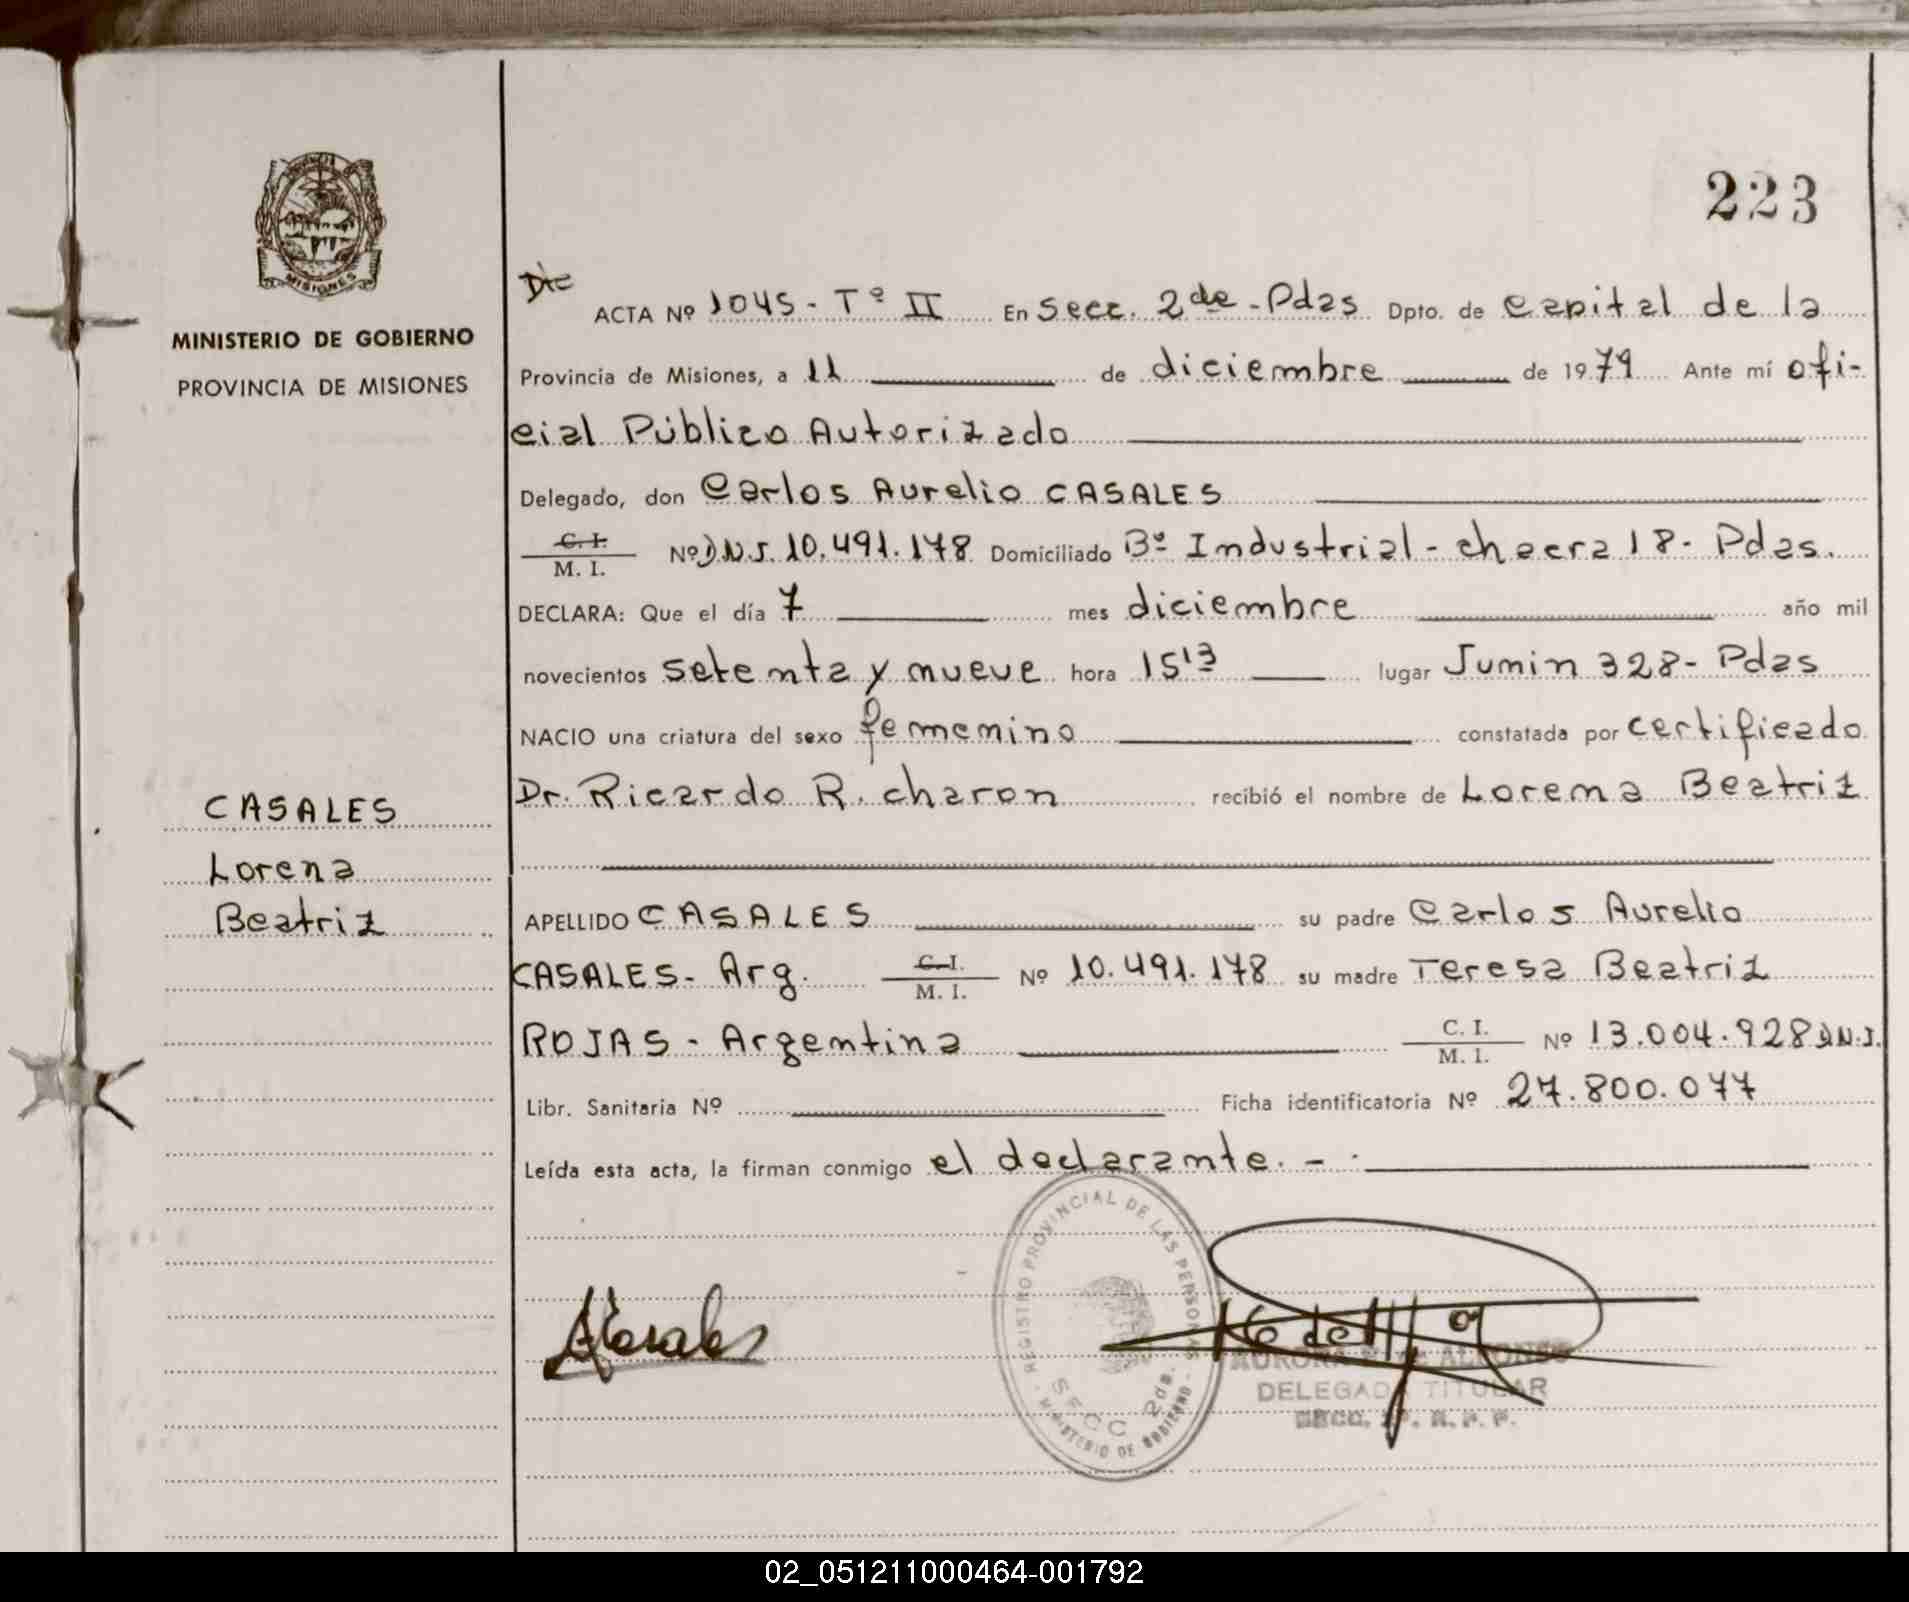 223
PROVINCIA
MISIONES
MINISTERIO DE GOBIERNO
PROVINCIA DE MISIONES
CASALES
Lorena
Beatriz
ACTA Nº 1045 - Tº II En Secc. 2da - Pdas Dpto. de Capital de la
Provincia de Misiones, a 11 de diciembre de 1979 Ante mí ofi-
cial Público Autorizado
Delegado, don Carlos Aurelio CASALES
C. I.
M. I. Nº D.N.I. 10.491.178 Domiciliado Bº Industrial - chacra 18 - Pdas.
DECLARA: Que el día 7 mes diciembre año mil
novecientos setenta y nueve hora 15 13 lugar Junin 328 - Pdas
NACIO una criatura del sexo femenino constatada por certificado
Dr. Ricardo R. charon recibió el nombre de Lorena Beatriz
APELLIDO CASALES su padre Carlos Aurelio
CASALES - Arg. C. I. M. I. Nº 10.491.178 su madre Teresa Beatriz
ROJAS - Argentina C. I. M. I. Nº 13.004.928 D.N.I.
Libr. Sanitaria Nº Ficha identificatoria Nº 27.800.077
Leída esta acta, la firman conmigo el declarante. -
REGISTRO PROVINCIAL DE LAS PERSONAS
SECC 2da.
MINISTERIO DE GOBIERNO
ACasales
AURORA ALFONSO
DELEGADA TITULAR
SECC.
02_051211000464-001792